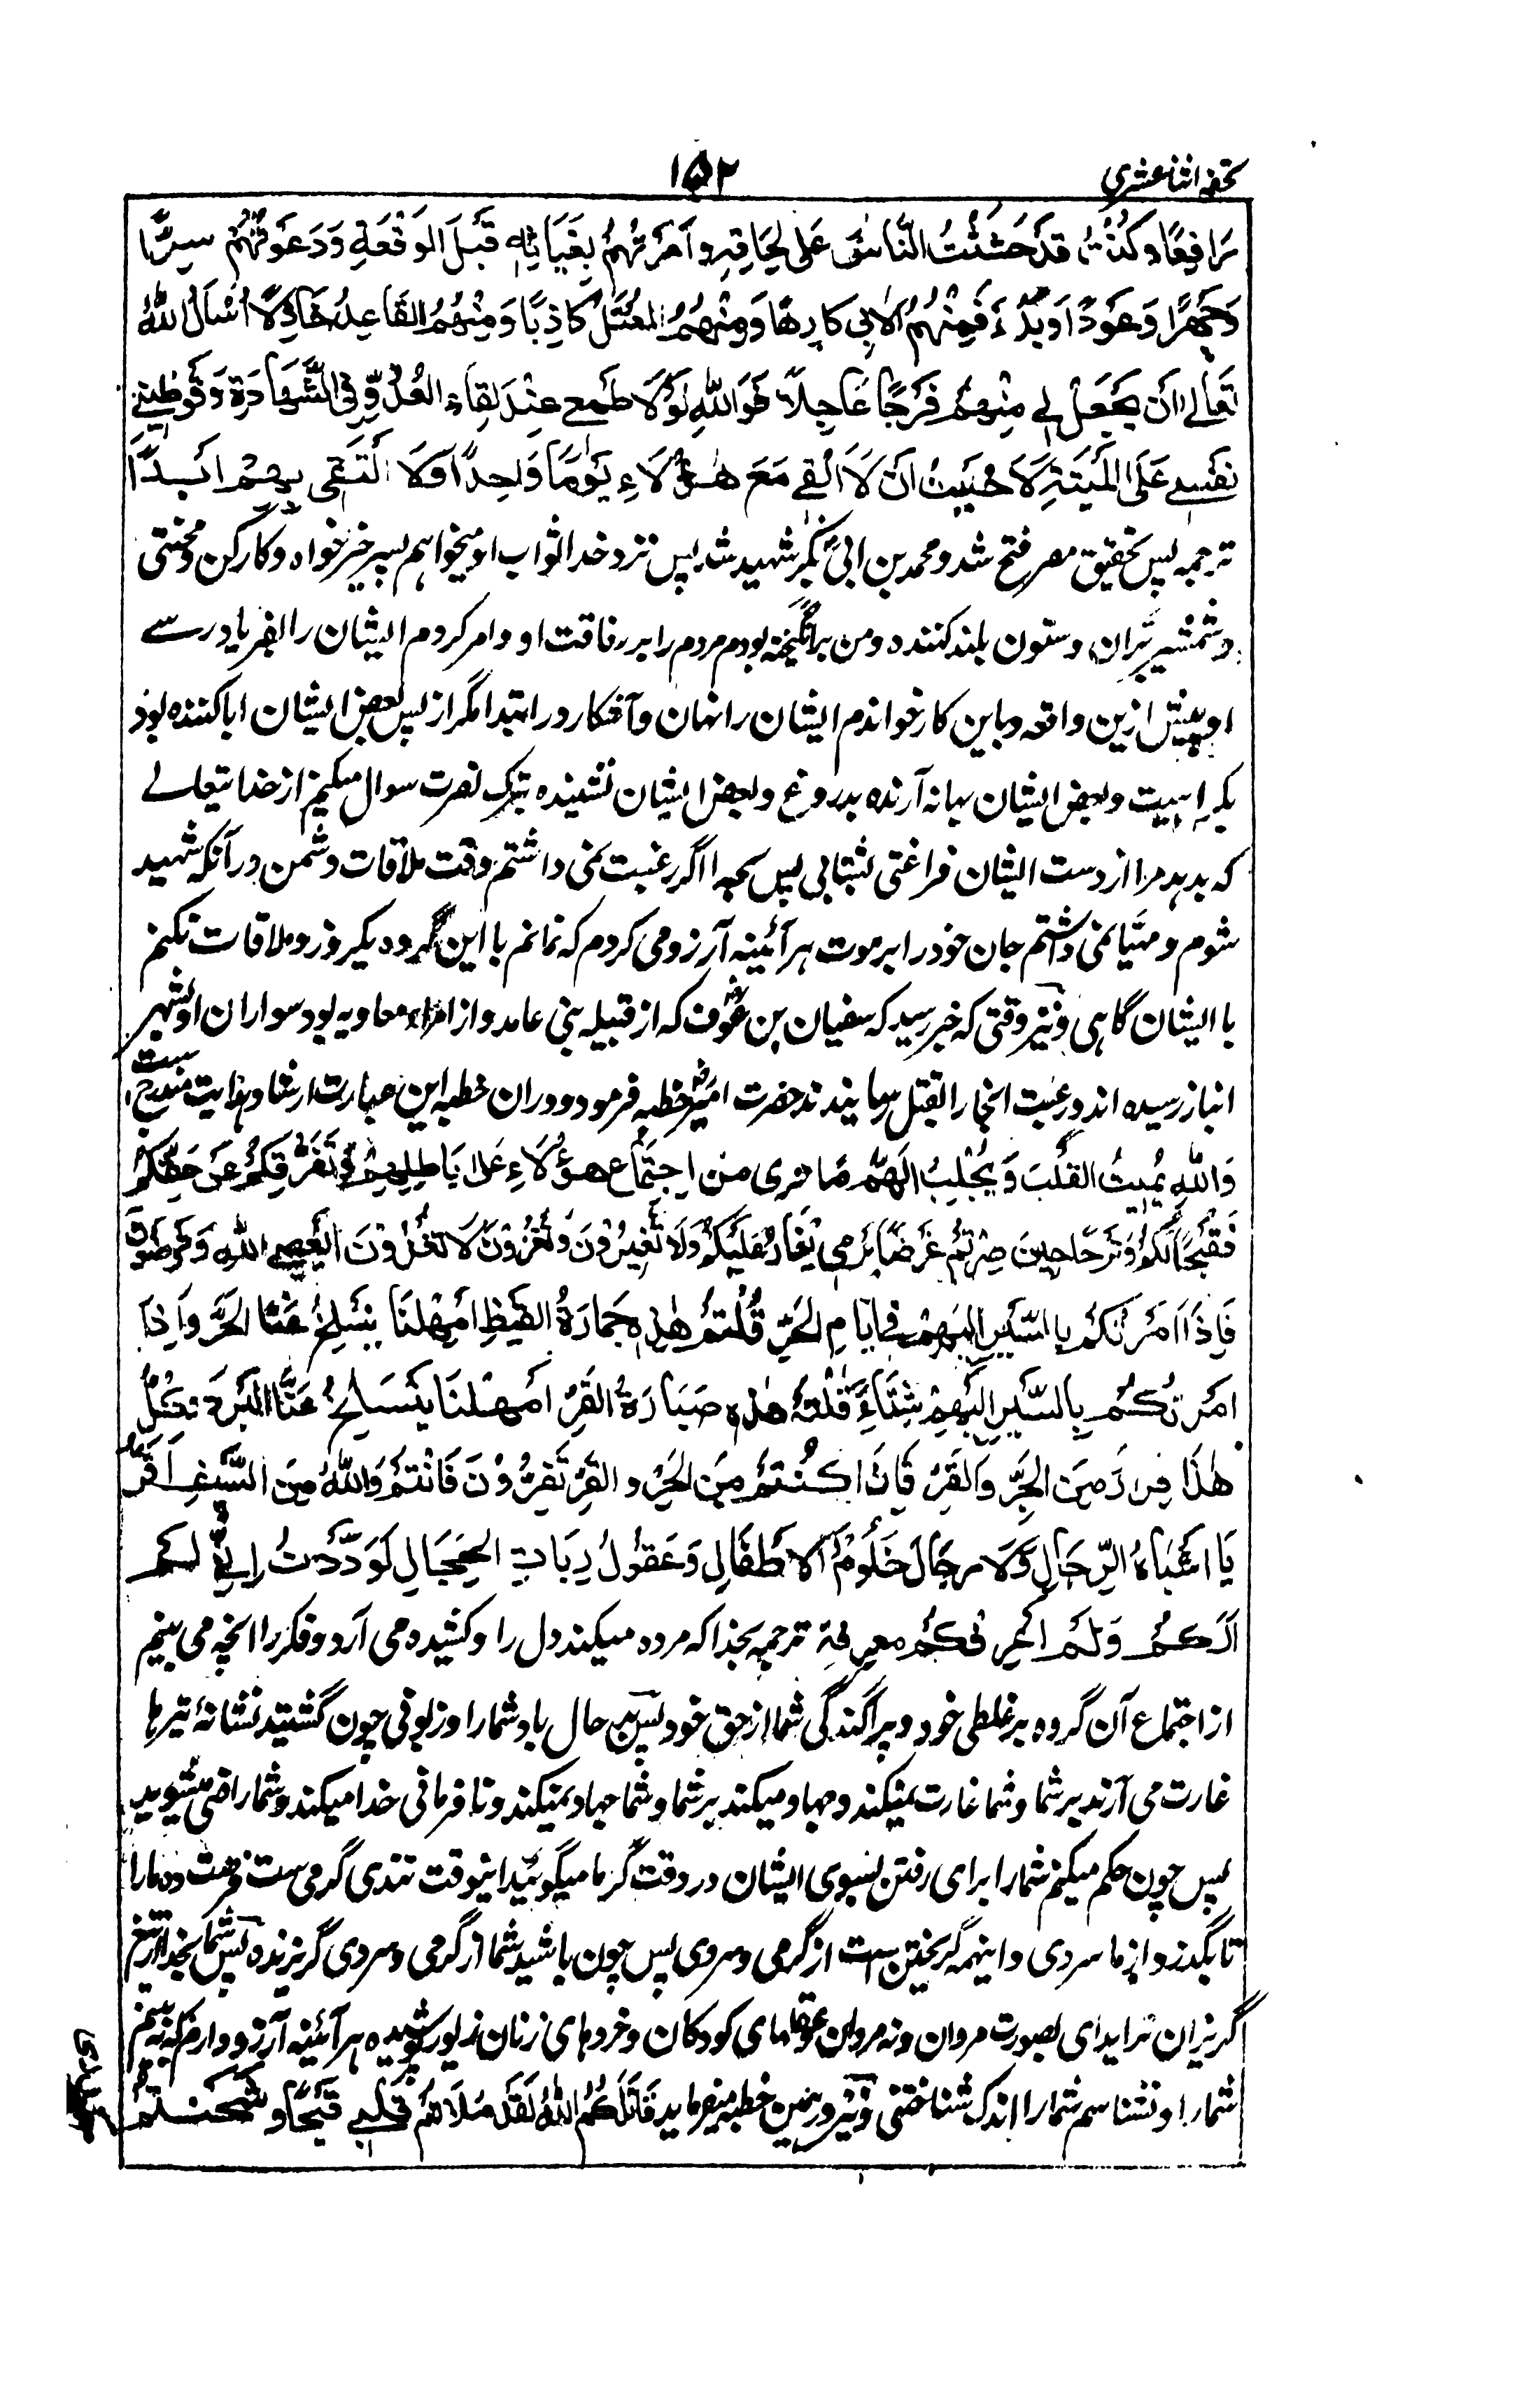 تحفه اثنا عشری
۱۵۲
رَافِعًا وَكُنْتُ قَدْ حَثَثْتُ النَّاسَ عَلٰی لِحَاقِهٖ وَاَمَرْتُهُمْ بِغِیَاثِهٖ قَبْلَ الْوَقْعَةِ وَدَعَوْتُهُمْ سِرًّا
وَجَهْرًا وَعَوْدًا وَبَدْءً فَمِنْهُمُ الْاٰتِی كَارِهًا وَمِنْهُمُ الْمُعْتَلُّ كَاذِبًا وَمِنْهُمُ الْقَاعِدُ خَاذِلًا اَسْاَلُ اللّٰهَ
تَعَالٰی اَنْ یَجْعَلَ لِی مِنْهُمْ فَرَجًا عَاجِلًا فَوَاللّٰهِ لَوْلَا طَمَعِی عِنْدَ لِقَاءِ الْعَدُوِّ فِی الشَّهَادَةِ وَتَوْطِینِی
نَفْسِی عَلَی الْمَنِیَّةِ لَاَحْبَبْتُ اَنْ لَا اَلْقٰی مَعَ هٰؤُلَاءِ یَوْمًا وَاحِدًا وَلَا اَلْتَقِی بِهِمْ اَبَدًا
ترجمه پس بتحقیق مصر فتح شد و محمد بن ابی بکر شهید شد پس نزد خدا ثواب او میخواهم پسر خیر خواه و کارکن و محنتی
و شمشیر بُران و ستون بلند کننده و من برانگیخته بودم مردم را بر رفاقت او و امر کردم ایشان را بفریادرسے
او پیش ازین واقعه و باین کار خواندم ایشان را نهان و آشکار و در ابتدا مگر از پس بعض ایشان ابا کننده بود
بکراهیت و بعض ایشان بهانه آرنده بدروغ و بعض ایشان نشیننده بترک نصرت سوال میکنم از خدایتعالے
که بدهد مرا از دست ایشان فراغتی بشتابی پس بخدا اگر رغبت نمی داشتم وقت ملاقات دشمن در آنکه شهید
شوم و مهیا نمی داشتم جان خود را بر موت هر آئینه آرزو می کردم که نمانم با این گروه یکروز و ملاقات نکنم
با ایشان گاهی و نیز وقتی که خبر رسید که سفیان بن عوف که از قبیله بنی غامد و از امراء معاویه بود سواران او بشهر
انبار رسیده اند و رعیت انجا را بقتل رسانیدند حضرت امیر خطبه فرمود و دران خطبه این عبارت ارشاد هدایت مندرج ست
وَاللّٰهِ یُمِیتُ الْقَلْبَ وَیَجْلِبُ الْهَمَّ مَا نَرٰی مِنْ اِجْتِمَاعِ هٰؤُلَاءِ عَلٰی بَاطِلِهِمْ وَتَفَرُّقِكُمْ عَنْ حَقِّكُمْ
فَقُبْحًا لَّكُمْ وَتَرَحًا حِینَ صِرْتُمْ غَرَضًا یُرْمٰی یُغَارُ عَلَیْكُمْ وَلَا تُغِیرُونَ وَتُغْزَوْنَ لَا تَغْزُونَ وَیُعْصَی اللّٰهُ وَتَرْضَوْنَ
فَاِذَا اَمَرْتُكُمْ بِالسَّیْرِ اِلَیْهِمْ فِی اَیَّامِ الْحَرِّ قُلْتُمْ هٰذِهٖ حَمَارَةُ الْقَیْظِ اَمْهِلْنَا یَنْسَلِخُ عَنَّا الْحَرُّ وَاِذَا
اَمَرْتُكُمْ بِالسَّیْرِ اِلَیْهِمْ شِتَاءً قُلْتُمْ هٰذِهٖ صَبَارَةُ الْقَرِّ اَمْهِلْنَا یَنْسَلِخُ عَنَّا الْبَرْدُ كُلُّ
هٰذَا فِرَارٌ مِنَ الْحَرِّ وَالْقَرِّ فَاِذَا كُنْتُمْ مِنَ الْحَرِّ وَالْقَرِّ تَفِرُّوْنَ فَاَنْتُمْ وَاللّٰهِ مِنَ السَّیْفِ اَفَرُّ
یَا اَشْبَاهَ الرِّجَالِ وَلَا رِجَالَ حُلُومُ الْاَطْفَالِ وَعُقُولُ رَبَّاتِ الْحِجَالِ لَوَدِدْتُ اَنِّی لَمْ
اَرَكُمْ وَلَمْ اَعْرِفْكُمْ مَعْرِفَةً ترجمه بخدا که مرده میکند دل را و کشیده می آرد و فکر را انچه می بینم
از اجتماع آن گروه بر غلطی خود و پراگندگی شما از حق خود پس بد حال باد شما را و زبونی چون گشتید نشانهٔ تیرها
غارت می آرند بر شما و شما غارت نمیکنند و جهاد میکنند بر شما و شما جهاد نمیکنند و نافرمانی خدا میکنند و شما راضی میشوید
پس چون حکم میکنم شما را برای رفتن بسوی ایشان در وقت گرما میگوئید اینوقت تندی گرمی ست فرصت ده ما را
تا بگذرد از ما سردی و اینهمه گریختن ست از گرمی و سردی پس چون باشید شما از گرمی و سردی گریزنده پس شما بخدا از تیغ
گریزان تراید ای بصورت مردان و نه مردان عقلهای کودکان و خردهای زنان زیور پوشیده هر آئینه آرزو دارم که نه بینم
شما را و نشناسم شما را اندک شناختنی و نیز در همین خطبه میفرماید قَاتَلَكُمُ اللّٰهُ لَقَدْ مَلَاْتُمْ قَلْبِی قَیْحًا وَشَحَنْتُمْ